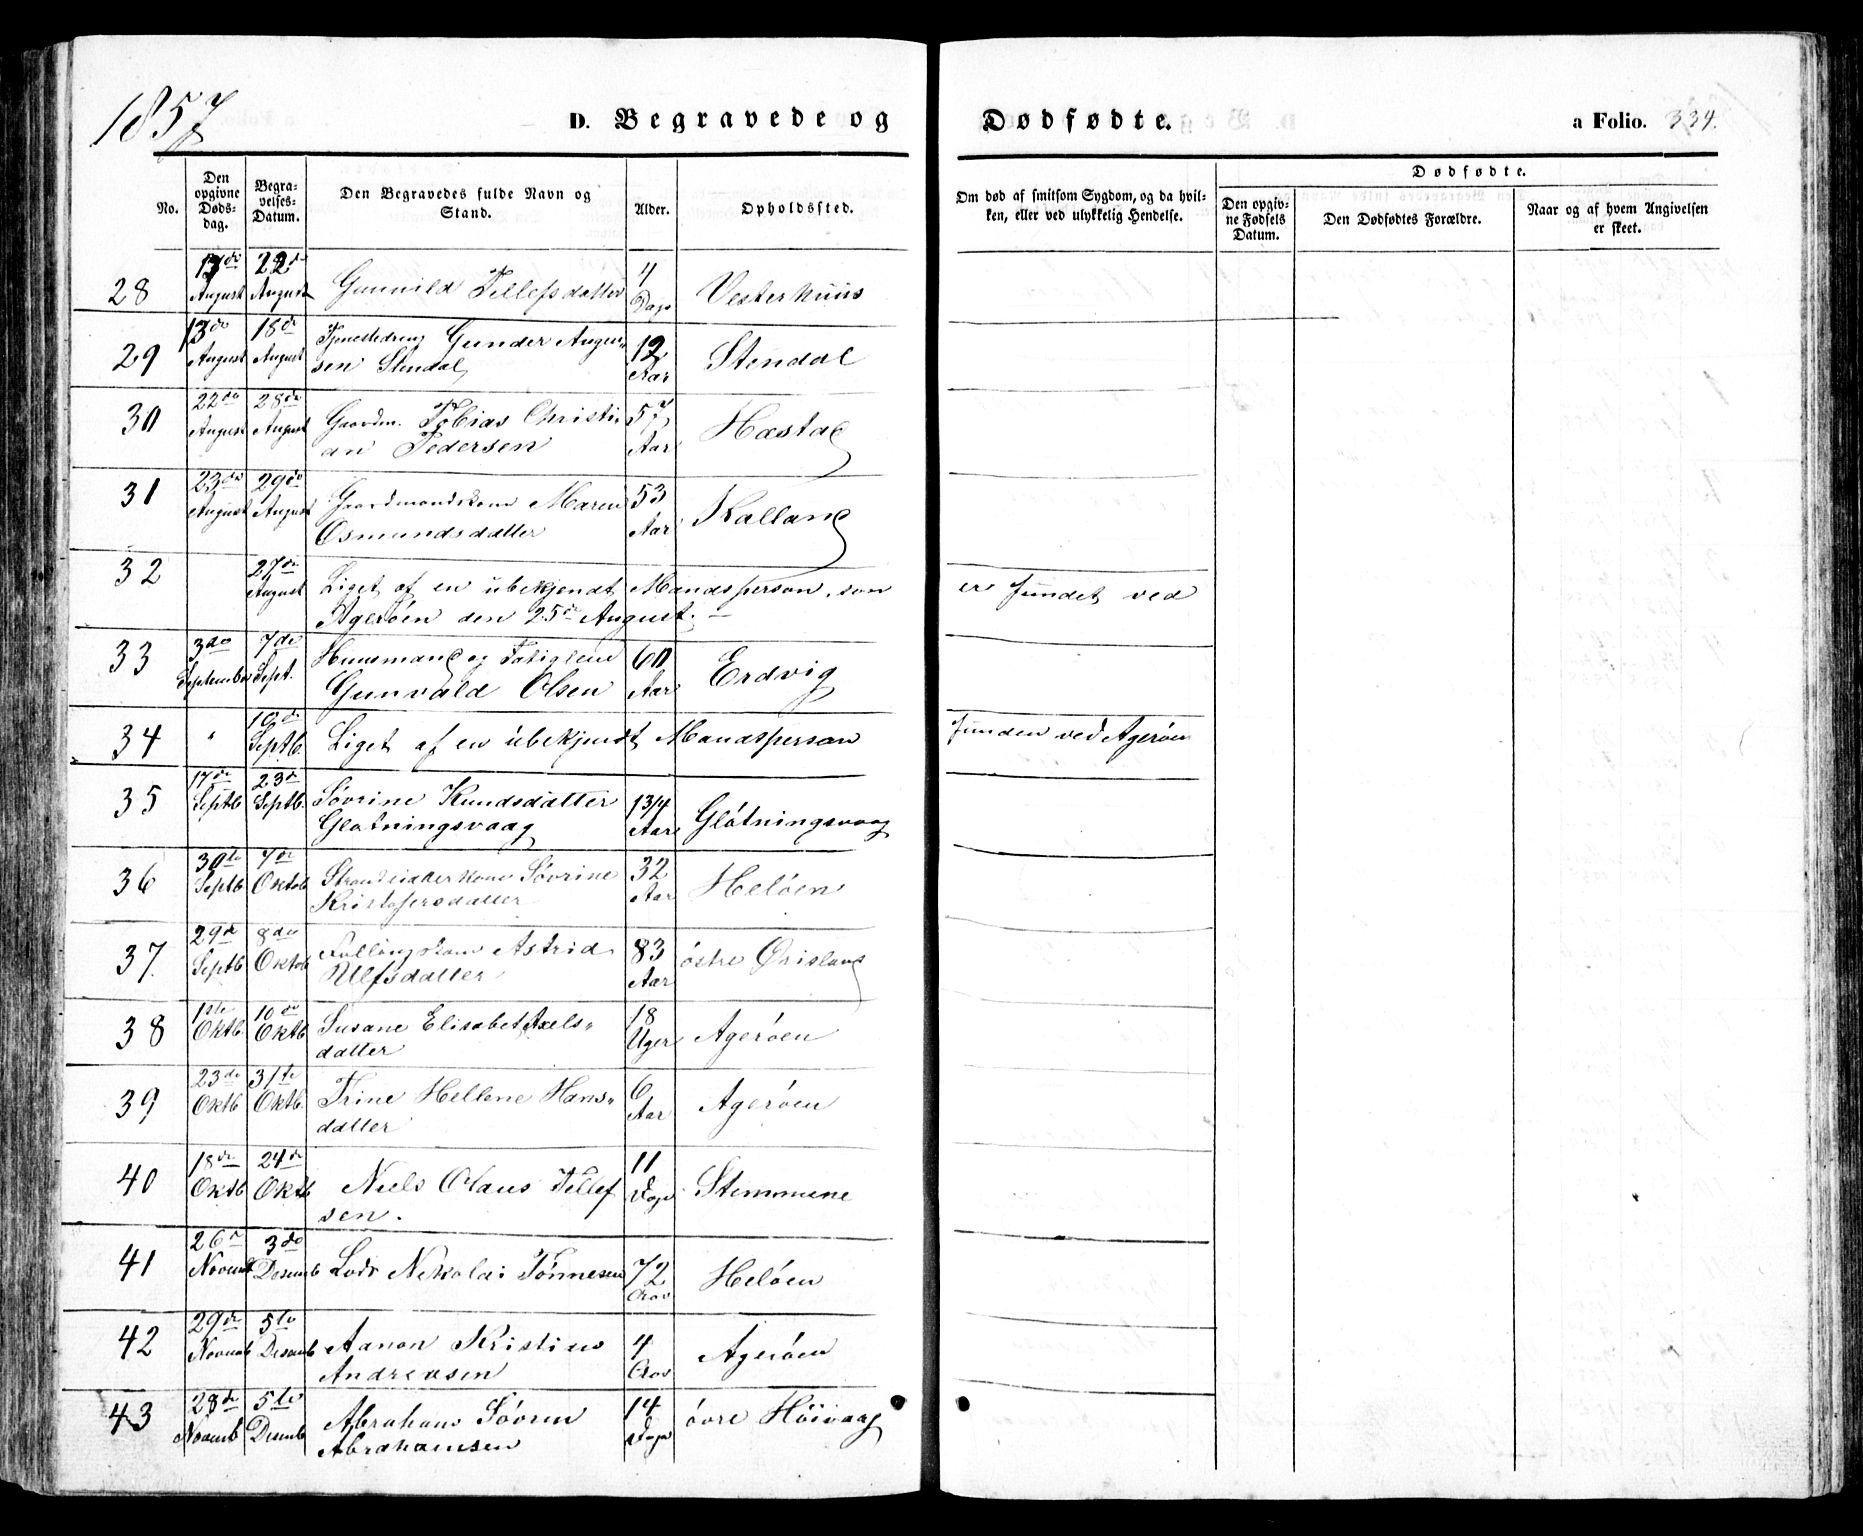 1857
D. Begravede og Dødfødte. a Folio. 334.
No.
Den opgivne Døds-dag.
Begra-velses-Datum.
Den Begravedes fulde Navn og Stand.
Alder.
Opholdssted.
Om død af smitsom Sygdom, og da hvil-ken, eller ved ulykkelig Hendelse.
Dødfødte.
Den opgiv-ne Fødsels Datum.
Den Dødfødtes Forældre.
Naar og af hvem Angivelsen er skeet.
28 August 22de August Gunvild Tellefsdatter 4 Dage Vesterhuus
29 13de August 18de August Tjenestedreng Gunder
sen Stendal 12 Aar Stendal
30 22de August 28de August Gaardm. Tobias Christi-
an Pedersen 57 Aar Hæstad
31 23de August 29de August Gaardmandskone Maren
Osmundsdatter 53 Aar Kalland
32 27de August Liget af en ubekjendt Mandsperson, som er fundet ved
Agerøen den 25de August. —
33 3die September 7de Sept. Huusmand og
Gunvald Olsen 60 Aar Erdvig
34 " 10de Septb. Liget af en ubekjendt Mandsperson funden ved Agerøen
35 17de Septb 23de Septb. Sövrine Knudsdatter
Glatningsvaag 13/4 Aar Glötningsvaag
36 30te Septb 7de Oktob Strandsidderkone Sövrine
Kristofersdatter 32 Aar Helöen
37 29de Septb 8de Oktob Astrid
Ulfsdatter 83 Aar östre Ørisland
38 1ste Oktb. 10de Oktb Susane Elisabet Axels-
datter 18 Uger Agerøen
39 23de Oktb 31te Oktb. Trine Hellene Hans-
datter 6 Aar Agerøen
40 18de Oktb 24de Oktb Niels Olaus Tellef
sen. 11 Dage Stemmene
41 26de Novemb 3die Desemb Lods Nikolai Tönnesen 72 Aar Helöen
42 29de Novemb 5te Desemb Aanon Kristian
Andreasen 4 Aar Agerøen
43 28de Novemb 5te Desemb Abraham Sövren
Abrahamsen 14 Dage övre Höivaag